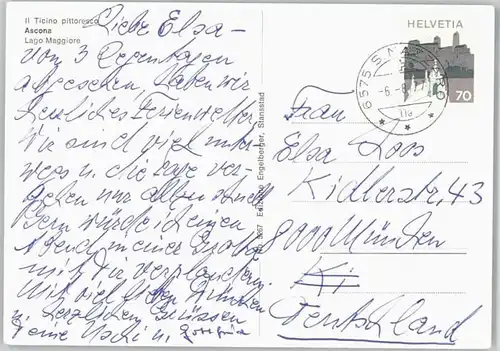 Il Ticino pittoresco
Ascona
Lago Maggiore
HELVETIA
70
6575 S
-6.-8
Edizione Engelberger, Stansstad
Liebe Elsa -
von 3 Regentagen
abgesehen haben wir
herrliches Ferienwetter
Wir sind viel unter-
wegs u. die Tage ver-
gehen nur allzu schnell
Gern würde ich einen
Abend in einer
mit Dir verplaudern.
Mit viel lieben
u. herzlichen Grüssen
Deine Uschi u.
Frau
Elsa Loos
Kidlerstr. 43
8000 München
Deutschland